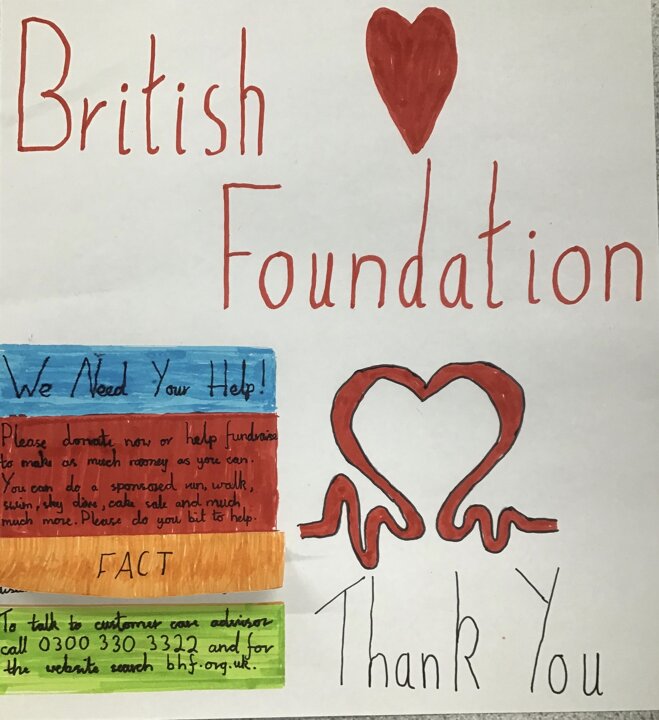 British
Foundation
We Need Your Help!
Please donate now or help fundraise
to make as much money as you can.
You can do a sponsored run, walk,
swim, sky dive, cake sale and much
much more. Please do you bit to help.
FACT
To talk to customer care advisor
call 0300 330 3322 and for
the website search bhf.org.uk.
Thank You